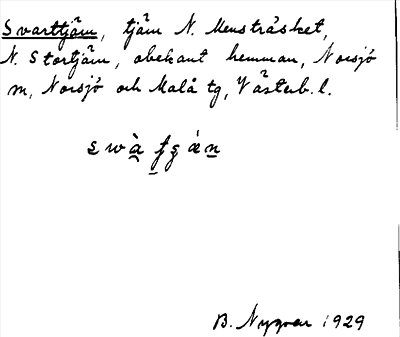 Svarttjärn, tjärn N. Mensträsket,
N. Stortjärn, obekant hemman, Norsjö
m, Norsjö och Malå tg, Västerb. l.
B. Nygren 1929